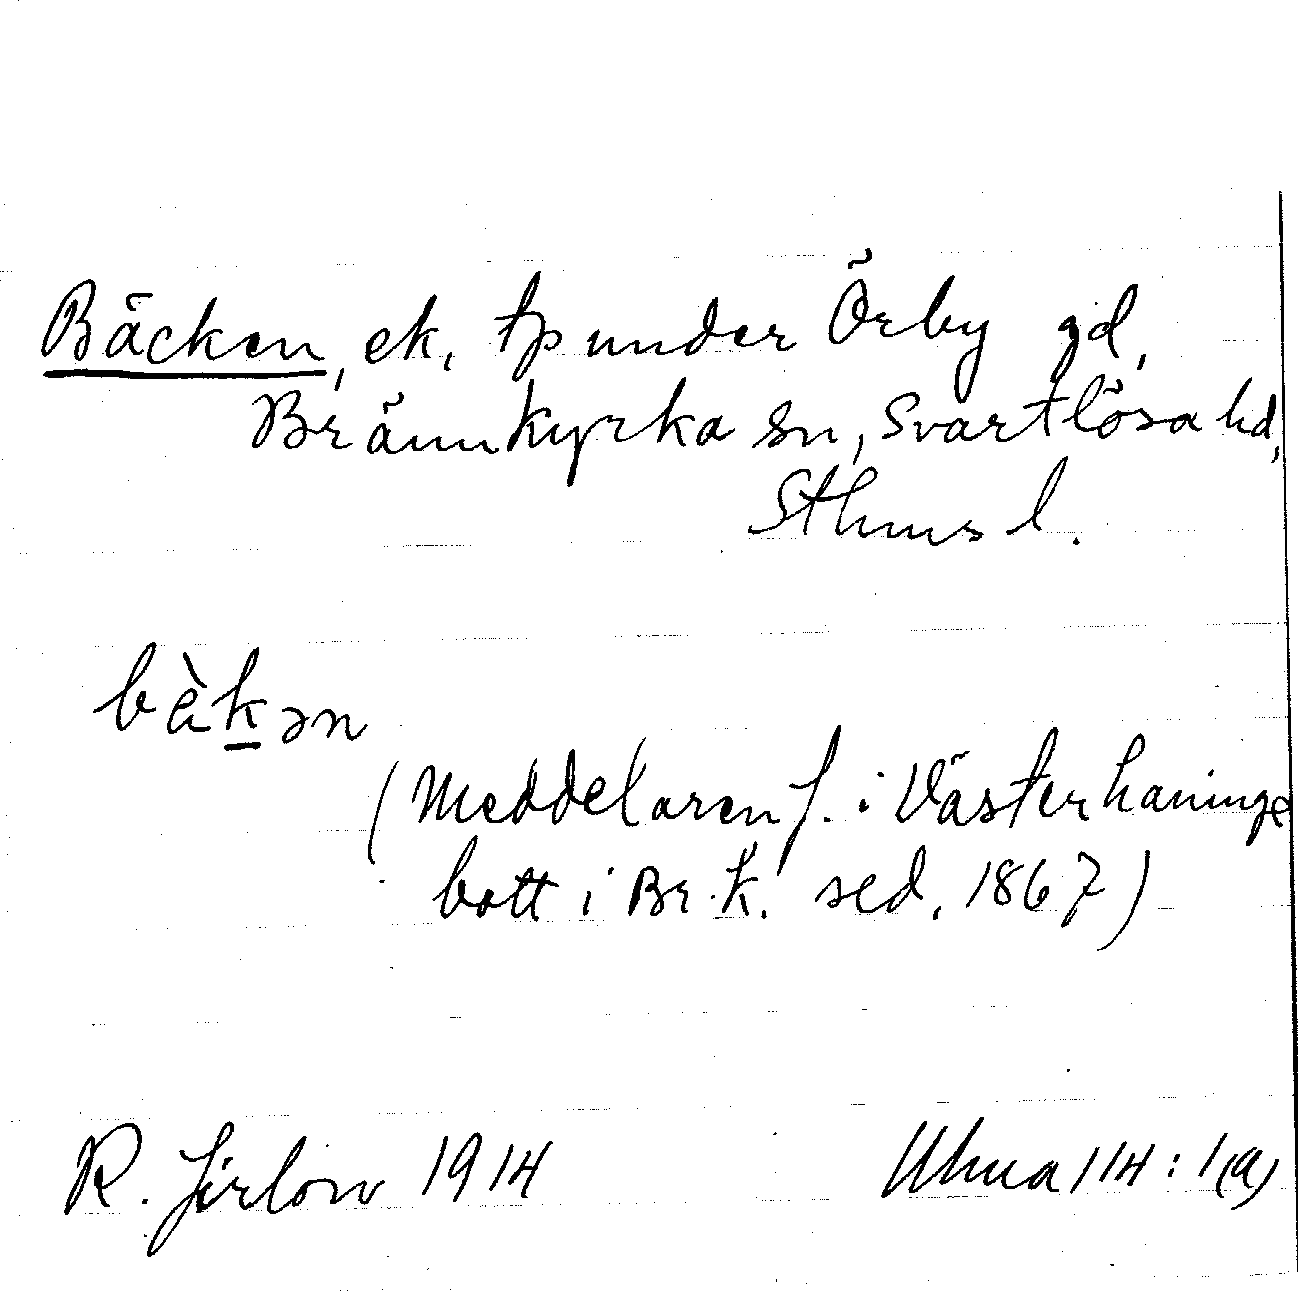 Bäcken, ek. tp under Örby gd,
Brännkyrka sn, Svartlösa hd,
Sthms l.
bæ̀kən
(Meddelaren f. i Västerhaninge
bott i Br.k. sed. 1867)
R. Jirlow 1914
Uhma 114:1(a)